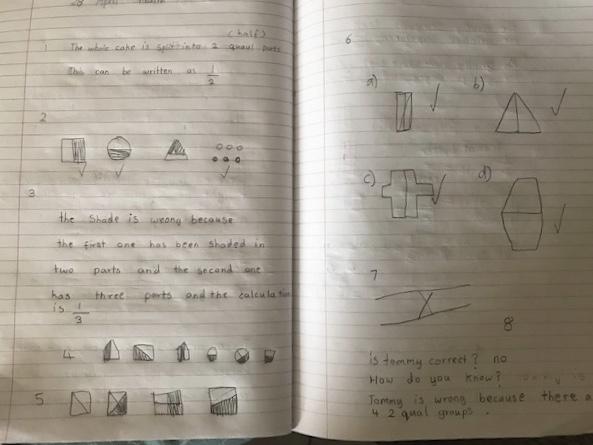 28 April
(half)
1 The whole cake is split into 2 qaual parts
This can be written as 1/2
2
3
the shade is wrong because
the first one has been shaded in
two parts and the second one
has three parts and the calculation
is 1/3
4
5
6
a) b)
c) d)
7
8
is tommy correct? no
How do you know?
Tommy is wrong because there a
4 2 qual groups.